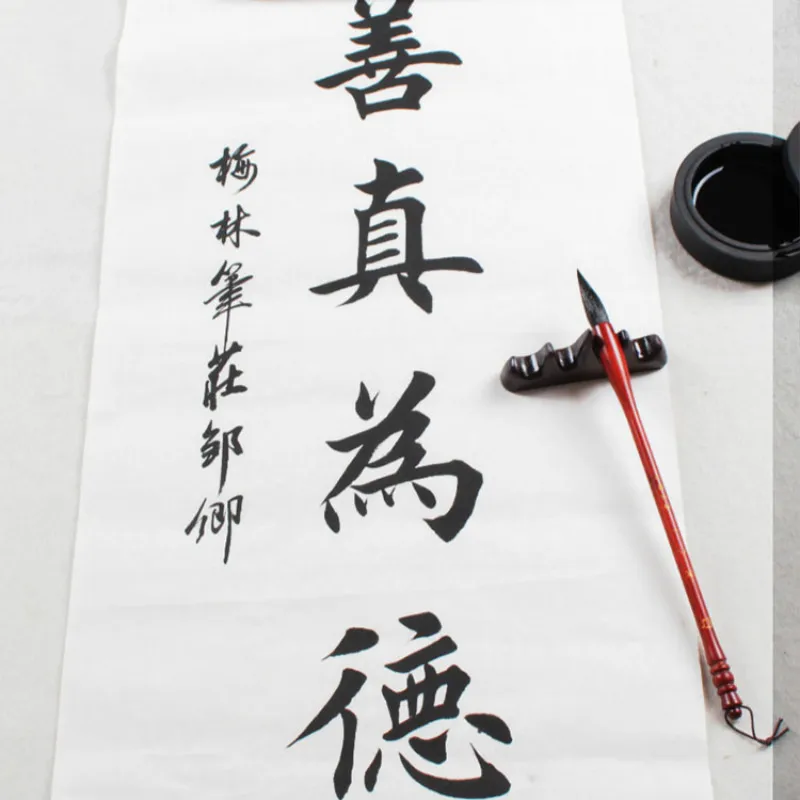 善真為德
梅林筆莊邹卿